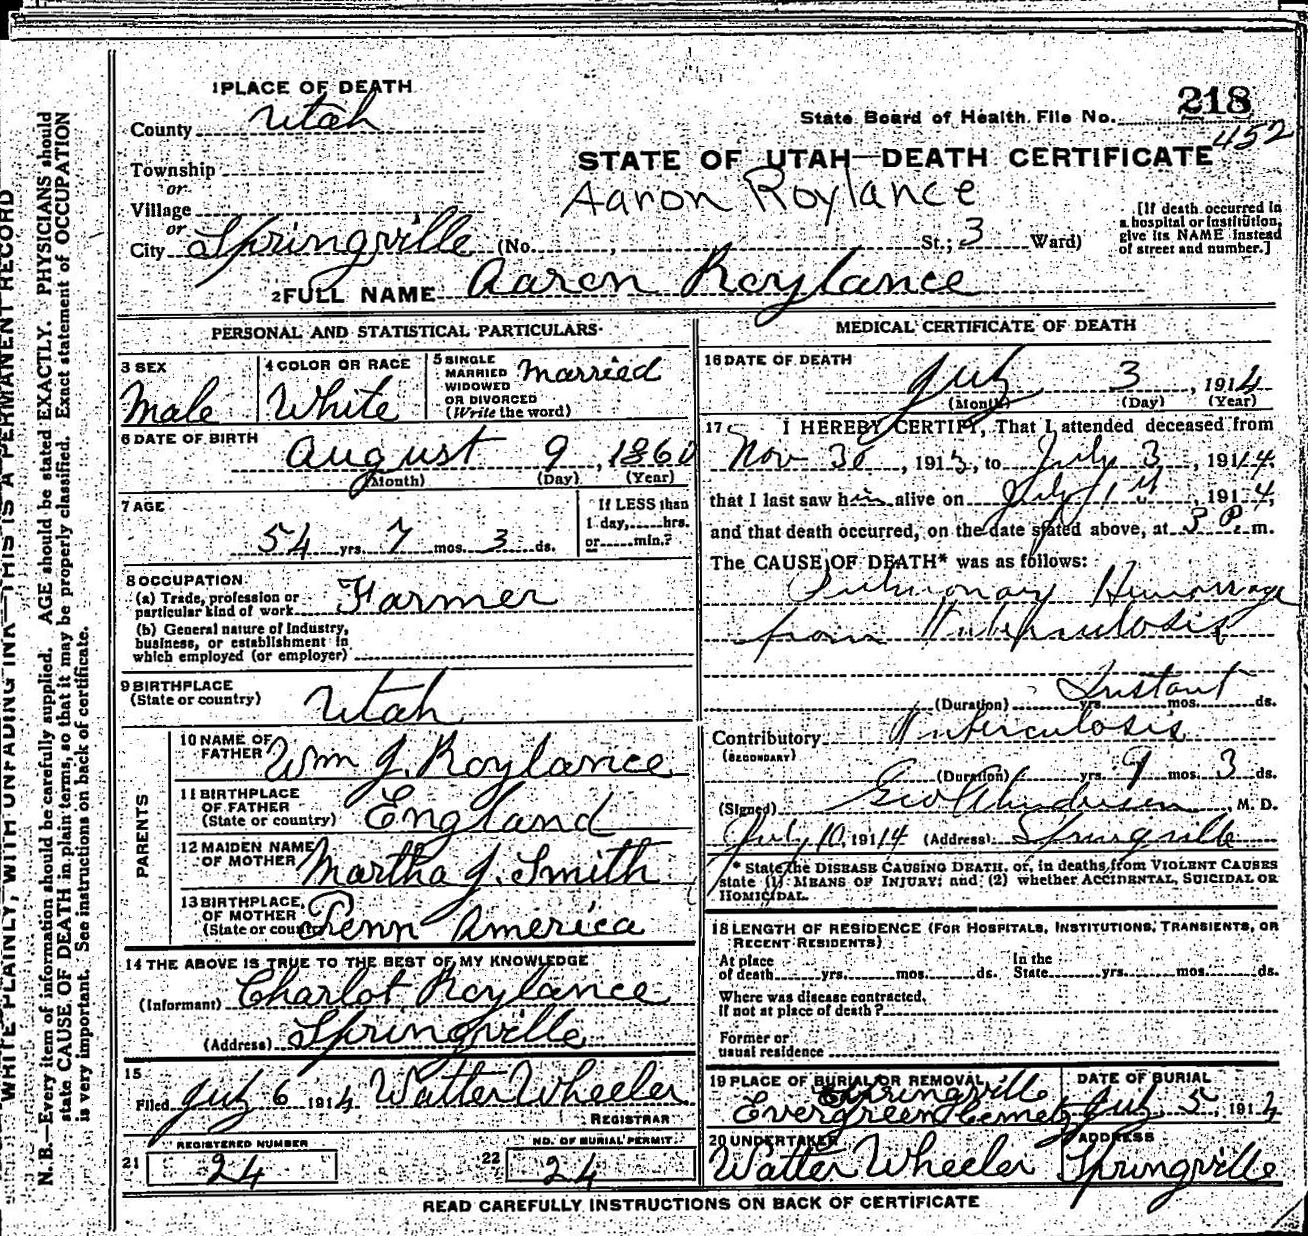 1 PLACE OF DEATH
County Utah
Township
or
Village
or
City Springville (No. , St.; 3 Ward)
State Board of Health File No. 218
452
STATE OF UTAH—DEATH CERTIFICATE
Aaron Roylance
[If death occurred in
a hospital or institution,
give its NAME instead
of street and number.]
2 FULL NAME Aaron Roylance
PERSONAL AND STATISTICAL PARTICULARS
3 SEX
Male
4 COLOR OR RACE
White
5 SINGLE
MARRIED
WIDOWED
OR DIVORCED
(Write the word)
Married
6 DATE OF BIRTH
August 9, 1860
(Month) (Day) (Year)
7 AGE
54 yrs. 7 mos. 3 ds.
If LESS than
1 day, hrs.
or min.?
8 OCCUPATION
(a) Trade, profession or
particular kind of work Farmer
(b) General nature of industry,
business, or establishment in
which employed (or employer)
9 BIRTHPLACE
(State or country) Utah
PARENTS
10 NAME OF
FATHER Wm J. Roylance
11 BIRTHPLACE
OF FATHER
(State or country) England
12 MAIDEN NAME
OF MOTHER Martha J. Smith
13 BIRTHPLACE
OF MOTHER
(State or country) Penn America
14 THE ABOVE IS TRUE TO THE BEST OF MY KNOWLEDGE
(Informant) Charlot Roylance
(Address) Springville
15
Filed July 6 1914 Walter Wheeler
REGISTRAR
REGISTERED NUMBER
21 24
NO. OF BURIAL PERMIT
22 24
MEDICAL CERTIFICATE OF DEATH
16 DATE OF DEATH
July 3, 1914
(Month) (Day) (Year)
17 I HEREBY CERTIFY, That I attended deceased from
Nov 30, 1913, to July 3, 1914,
that I last saw him alive on July 1st, 1914,
and that death occurred, on the date stated above, at 3 P. m.
The CAUSE OF DEATH* was as follows:
Pulmonary Hemorrage
from Tuberculosis
Instant
(Duration) yrs. mos. ds.
Contributory Tuberculosis
(SECONDARY)
(Duration) yrs. 9 mos. 3 ds.
(Signed) Geo Anderson, M. D.
July 10, 1914 (Address) Springville
* State the DISEASE CAUSING DEATH, or, in deaths from VIOLENT CAUSES
state (1) MEANS OF INJURY; and (2) whether ACCIDENTAL, SUICIDAL OR
HOMICIDAL.
18 LENGTH OF RESIDENCE (FOR HOSPITALS, INSTITUTIONS, TRANSIENTS, OR
RECENT RESIDENTS)
At place
of death yrs. mos. ds.
In the
State yrs. mos. ds.
Where was disease contracted,
if not at place of death?
Former or
usual residence
19 PLACE OF BURIAL OR REMOVAL
Springville
Evergreen Cemety
DATE OF BURIAL
July 5, 1914
20 UNDERTAKER
Walter Wheeler
ADDRESS
Springville
READ CAREFULLY INSTRUCTIONS ON BACK OF CERTIFICATE
WRITE PLAINLY, WITH UNFADING INK—THIS IS A PERMANENT RECORD
N. B.—Every item of information should be carefully supplied. AGE should be stated EXACTLY. PHYSICIANS should
state CAUSE OF DEATH in plain terms, so that it may be properly classified. Exact statement of OCCUPATION
is very important. See instructions on back of certificate.